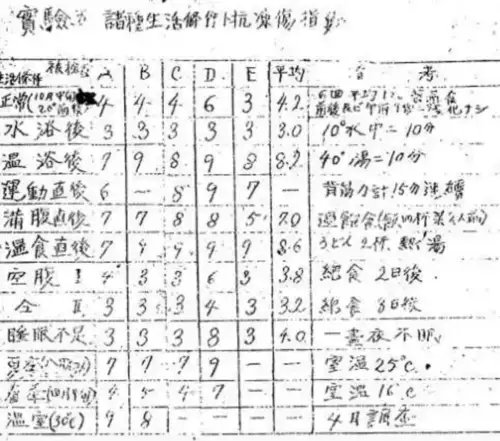 實驗 諸種生活條件ト抗凍傷指數
生活條件 被檢者 A B C D E 平均 備考
正常(10月中旬 20°前後) 4 4 4 6 3 4.2 6回平均
水浴後 3 3 3 3 3 3.0 10°水中ニ10分
溫浴後 7 9 8 9 8 8.2 40°湯ニ10分
運動直後 6 — 8 9 7 — 背筋力計15分連續
滿腹直後 7 7 8 8 5 7.0 過飽食
溫食直後 7 9 9 9 9 8.6 うどん2杯 熱イ湯
空腹 I 4 3 3 6 3 3.8 絕食2日後
仝 II 3 3 3 4 3 3.2 絕食3日後
睡眠不足 3 3 3 8 3 4.0 一晝夜不眠
7 7 7 9 — — 室溫25°C.
4 7 — — 室溫16°C
溫室(30°C) 9 8 — — — — 4月調查